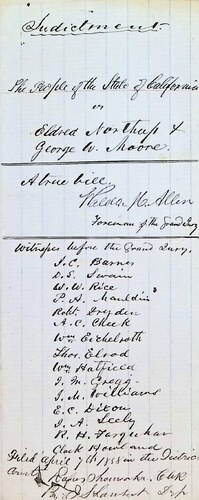 Indictment.
The People of the State of California
vs
Eldred Northup &
George W. Moore.
A true bill.
Allen
Foreman of the Grand Jury
Witnesses before the Grand Jury.
J. C. Barnes
D. S. Swain
W. W. Rice
P. H. Mauldin
Robt Dryden
A. C. Cheek
Wm Eichelroth
Thos. Elrod
Wm Hatfield
J. M. Gregg
J. M. Williams
E. C. Dixon
J. A. Seely
R. H. Farquhar
Clark Howland
Filed April 7th 1858 in the District
Court
Clk
By Dep